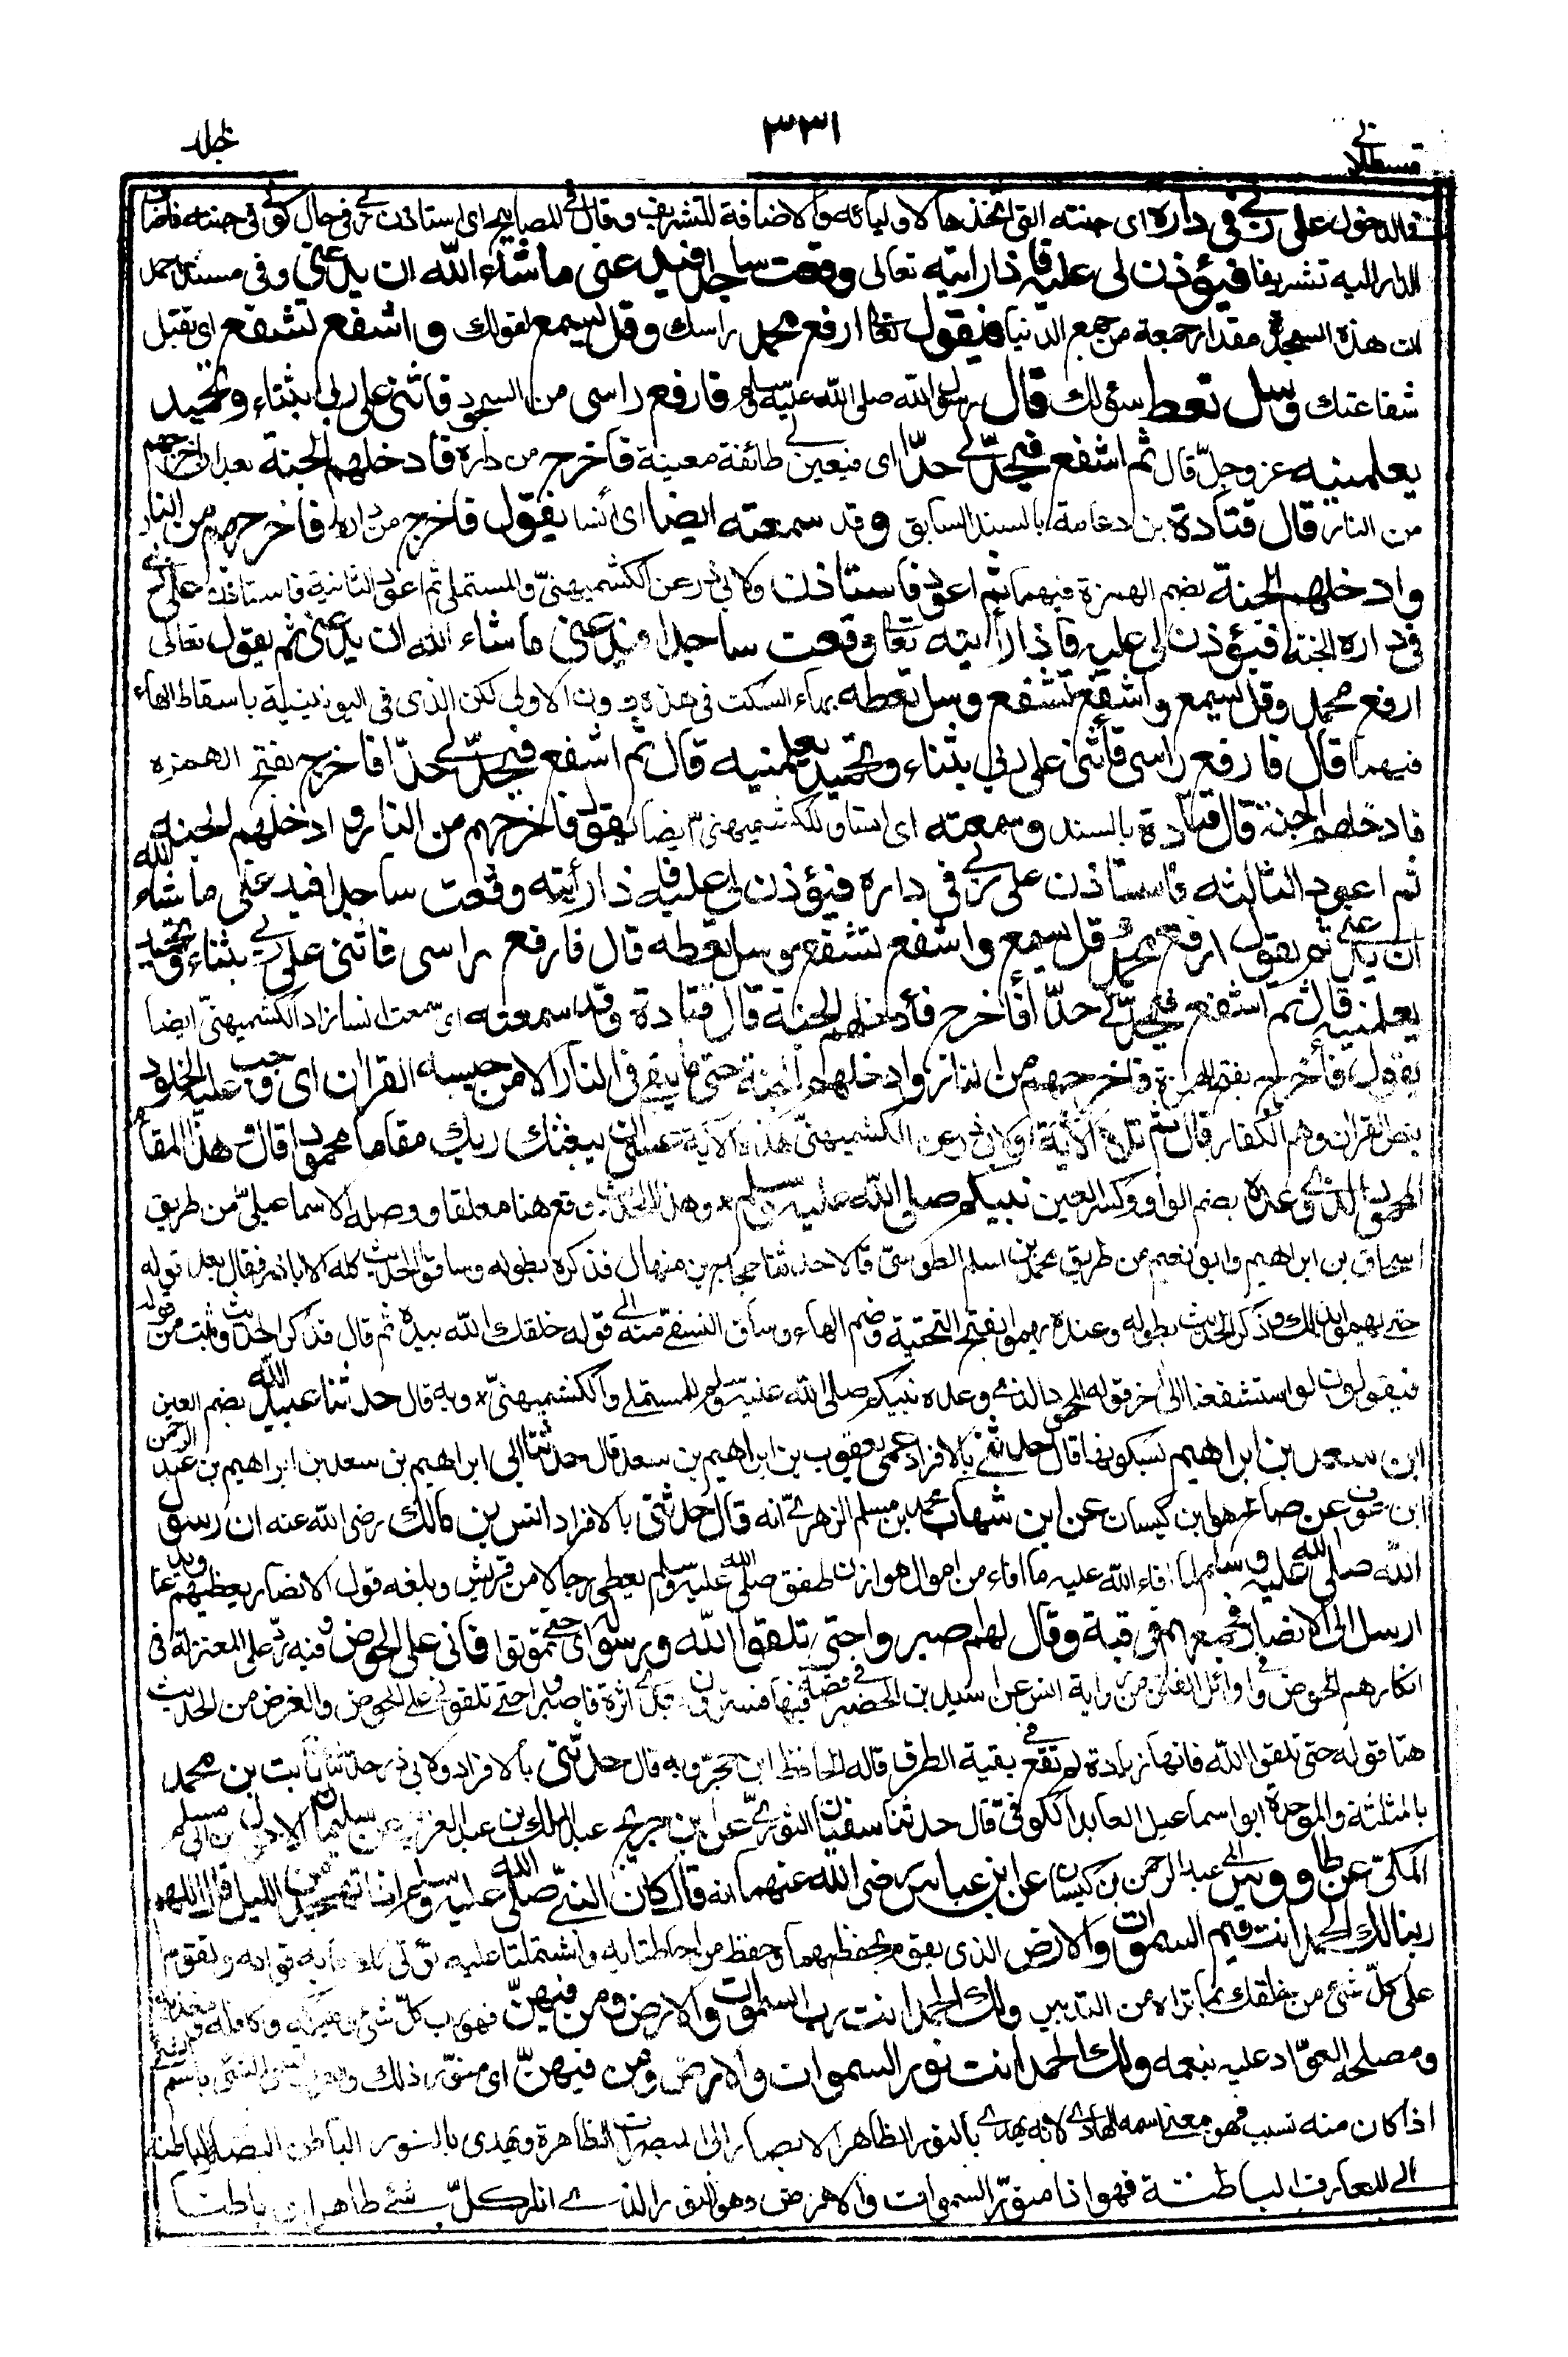 قسطلانی ٣٣١ جلد
فى الدخول على ربي في داره اى جنته التي اتخذها لاوليائه والاضافة للتشريف وقال في المصابيح اى استاذن ربي في حال كوني في جنته فاضاف
الدار اليه تشريفا فيؤذن لى عليه فاذا رايته تعالى وقعت ساجدا فيدعنى ماشاء الله ان يدعنى وفى مسند احمد
ان هذه السجدة مقدار جمعة من جمع الدنيا فيقول تعالى ارفع محمد راسك وقل يسمع لقولك واشفع تشفع اى تقبل
شفاعتك وسل تعط سؤلك قال رسول الله صلى الله عليه وسلم فارفع راسى من السجود فاثنى على ربي بثناء وتحميد
يعلمنيه عز وجل قال ثم اشفع فيحد لي حدا اى فيعين لي طائفة معينة فاخرج من داره فادخلهم الجنة بعد ان اخرجهم
من النار قال قتادة بن دعامة بالسند السابق وقد سمعته ايضا اى أنسا يقول فاخرج من داره فاخرجهم من النار
وادخلهم الجنة بضم الهمزة فيهما ثم اعود فاستاذن ولابى ذر عن الكشميهنى والمستملى ثم اعود الثانية فاستاذن على ربي
فى داره الجنة فيؤذن لى عليه فاذا رأيته تعالى وقعت ساجدا فيدعنى ماشاء الله ان يدعنى ثم يقول تعالى
ارفع محمد وقل يسمع واشفع تشفع وسل تعطه بهاء السكت فى هذه دون الاولى لكن الذى فى اليونينية باسقاط الهاء
فيهما قال فارفع راسى فأثنى على ربي بثناء وتحميد يعلمنيه قال ثم اشفع فيحد لي حدا فاخرج بفتح الهمزة
فادخلهم الجنة قال قتادة بالسند وسمعته اى انسا وللكشميهنى ايضا يقول فاخرجهم من النار وادخلهم الجنة
ثم اعود الثالثة فاستاذن على ربي في داره فيؤذن لى عليه فاذا رأيته وقعت ساجدا فيدعنى ماشاء الله
ان يدعنى ثم يقول ارفع محمد وقل يسمع واشفع تشفع وسل تعطه قال فارفع راسى فاثنى على ربي بثناء وتحميد
يعلمنيه قال ثم اشفع فيحد لي حدا فأخرج فأدخلهم الجنة قال قتادة وقد سمعته اى سمعت انسا زاد الكشميهنى ايضا
يقول فأخرج بفتح الهمزة فاخرجهم من النار وادخلهم الجنة حتى ما يبقى فى النار الا من حبسه القرآن اى وجب عليه الخلود
بنص القرآن وهم الكفار قال ثم تلا الآية ولابى ذر عن الكشميهنى هذه الآية عسى ان يبعثك ربك مقاما محمودا قال وهذا المقام
المحمود الذى وعده بضم الواو وكسر العين نبيكم صلى الله عليه وسلم وهذا الحديث وقع هنا معلقا ووصله الاسماعيلى من طريق
اسحاق بن ابراهيم وابو نعيم من طريق محمد بن اسلم الطوسى قالا حدثنا حجاج بن منهال فذكره بطوله وساقوا الحديث كله الا اباذر فقال بعد قوله
حتى يهموا بذلك وذكر الحديث بطوله وعنده يهموا بفتح التحتية وضم الهاء وساق النسفى منه الى قوله خلقك الله بيده ثم قال فذكر الحديث وثبت من قوله
فيقولون لو استشفعنا الى آخر قوله المحمود الذى وعده نبيكم صلى الله عليه وسلم للمستملى والكشميهنى وبه قال حدثنا عبيد الله بضم العين
ابن سعد بن ابراهيم بسكونها قال حدثنى بالافراد عمى يعقوب بن ابراهيم بن سعد قال حدثنا ابى ابراهيم بن سعد بن ابراهيم بن عبد الرحمن
ابن عوف عن صالح هو ابن كيسان عن ابن شهاب محمد بن مسلم الزهرى انه قال حدثنى بالافراد انس بن مالك رضى الله عنه ان رسول
الله صلى الله عليه وسلم لما افاء الله عليه ما افاء من اموال هوازن طفق صلى الله عليه وسلم يعطى رجالا من قريش وبلغه قول الانصار يعطيهم ويدعنا
ارسل الى الانصار فجمعهم فى قبة وقال لهم صبروا حتى تلقوا الله ورسوله اى حتى تموتوا فانى على الحوض وفيه رد على المعتزلة فى
انكارهم الحوض وفى اوائل الفتن من رواية انس عن اسيد بن الحضير فى قصة فيها فسترون بعدى اثرة فاصبروا حتى تلقونى على الحوض والغرض من الحديث
هنا قوله حتى تلقوا الله فانها زيادة لم تقع فى بقية الطرق قاله الحافظ ابن حجر وبه قال حدثنى بالافراد ولابى ذر حدثنا ثابت بن محمد
بالمثلثة والموحدة ابو اسماعيل العابد الكوفى قال حدثنا سفيان الثورى عن ابن جريج عبد الملك بن عبد العزيز عن سليمان الاحول بن ابى مسلم
المكى عن طاووس ابى عبد الرحمن بن كيسان عن ابن عباس رضى الله عنهما انه قال كان النبى صلى الله عليه وسلم اذا تهجد من الليل قال اللهم
ربنا لك الحمد انت قيم السموات والارض الذى يقوم بحفظهما وحفظ من احاطتا به واشتملتا عليه تؤتى كلا ما به قوامه وتقوم
على كل شئ من خلقك بما تراه من التدبير ولك الحمد انت رب السموات والارض ومن فيهن فهو رب كل شئ ومليكه وكافله ومغذيه
ومصلحه العواد عليه بنعمه ولك الحمد انت نور السموات والارض ومن فيهن اى منور ذلك والعرب تسمى الشئ باسم الشئ
اذا كان منه تسبب فهو معنى اسمه الهادى لانه يهدى بالنور الظاهر الابصار الى المبصرات الظاهرة ويهدى بالنور الباطن البصائر الباطنة
الى المعارف الباطنة فهو اذا منور السموات والارض وهو النور الذى انار كل شئ ظاهرا وباطنا